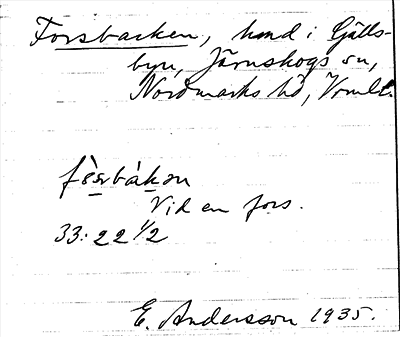 Forsbacken, hmd i Gälls-
byn, Järnskogs sn,
Nordmarks hd, Vrml.
Vid en fors.
33: 22 1/2
E. Andersson 1935.